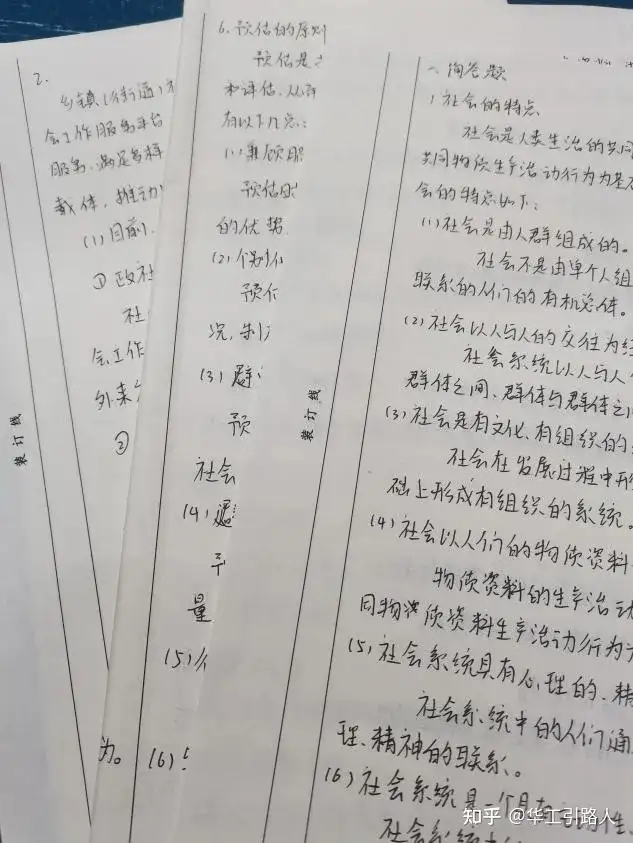 2.
乡镇(街道)
会工作服务平台
服务,满足多样
载体,推动
(1)目前
①政社
社
会工作
外来
②
装订线
6.预估的原则
预估是
和评估,从
有以下几点:
(1)兼顾
预估
的优势
(2)个别化
预估
况,制
(3)群
预
社会
(4)避
量
(5)
为。
(6)
装订线
一、简答题
1.社会的特点
社会是人类生活的共同
共同物质生产活动行为为基
会的特点如下:
(1)社会是由人群组成的。
社会不是由单个人组
联系的人们的有机总体。
(2)社会以人与人的交往为纽
社会系统以人与人
群体之间、群体与群体之
(3)社会是有文化、有组织的
社会在发展过程中形
础上形成有组织的系统。
(4)社会以人们的物质资料
物质资料的生产活动
同物质资料生产活动行为
(5)社会系统具有心理的、精
社会系统中的人们通
理、精神的联系。
(6)社会系统是一个具有主动性、
社会系统
知乎 @华工引路人